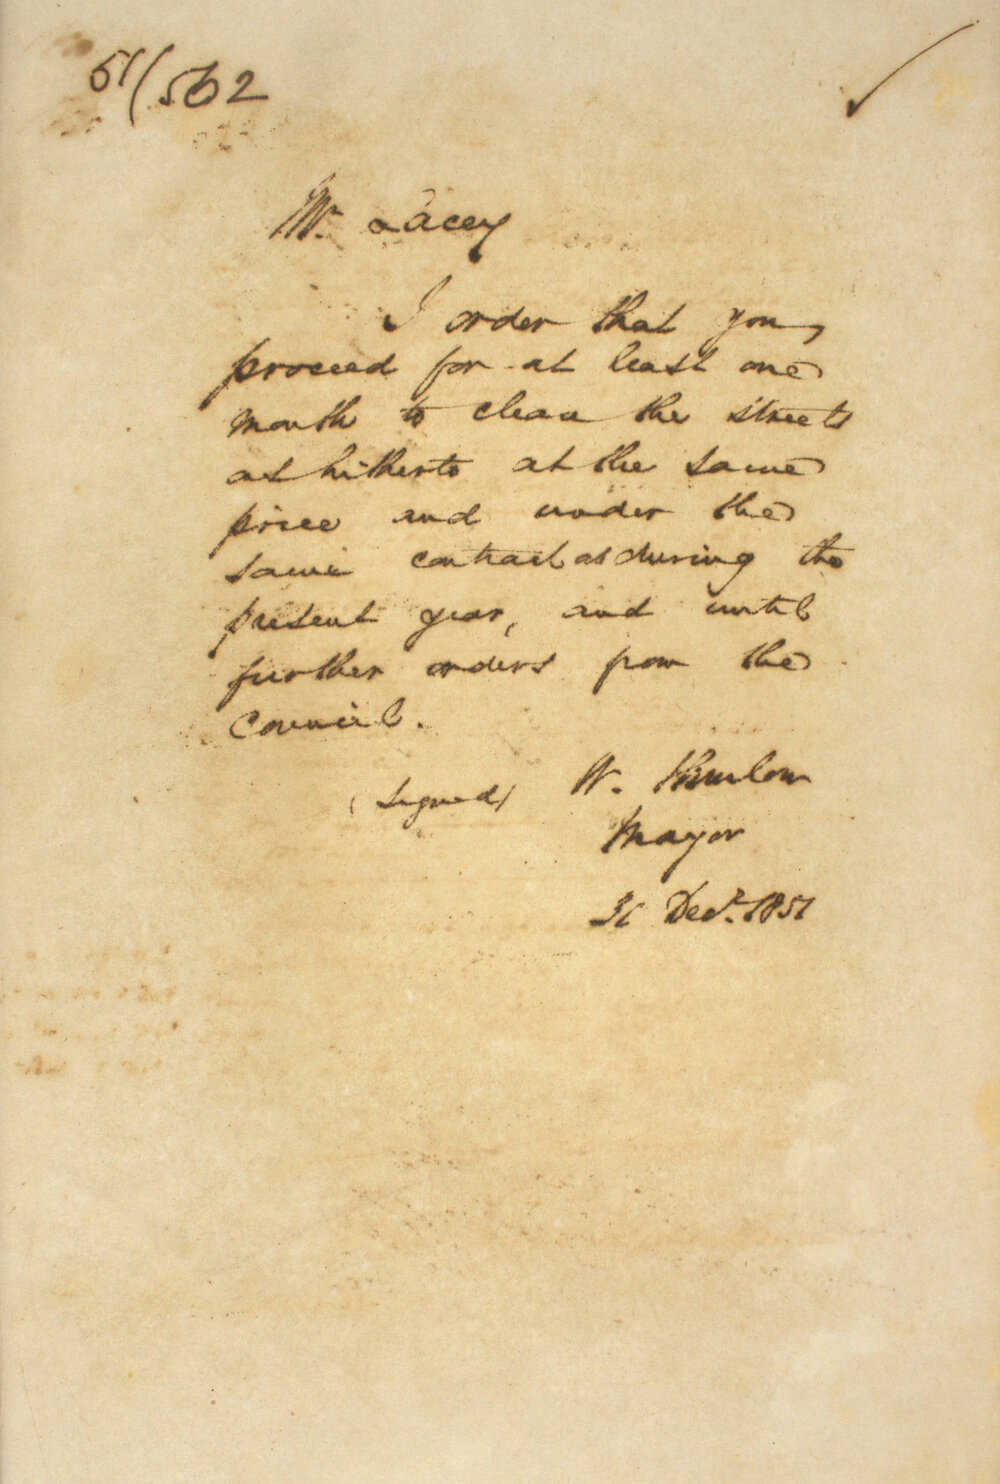 51/562
Mr. Lacey
I order that you,
proceed for at least one
month to clean the streets
as hitherto at the same
price and under the
same contract as during the
present year, and until
further orders from the
Council.
(signed) W. Thurlow
Mayor
31 Decr. 1851